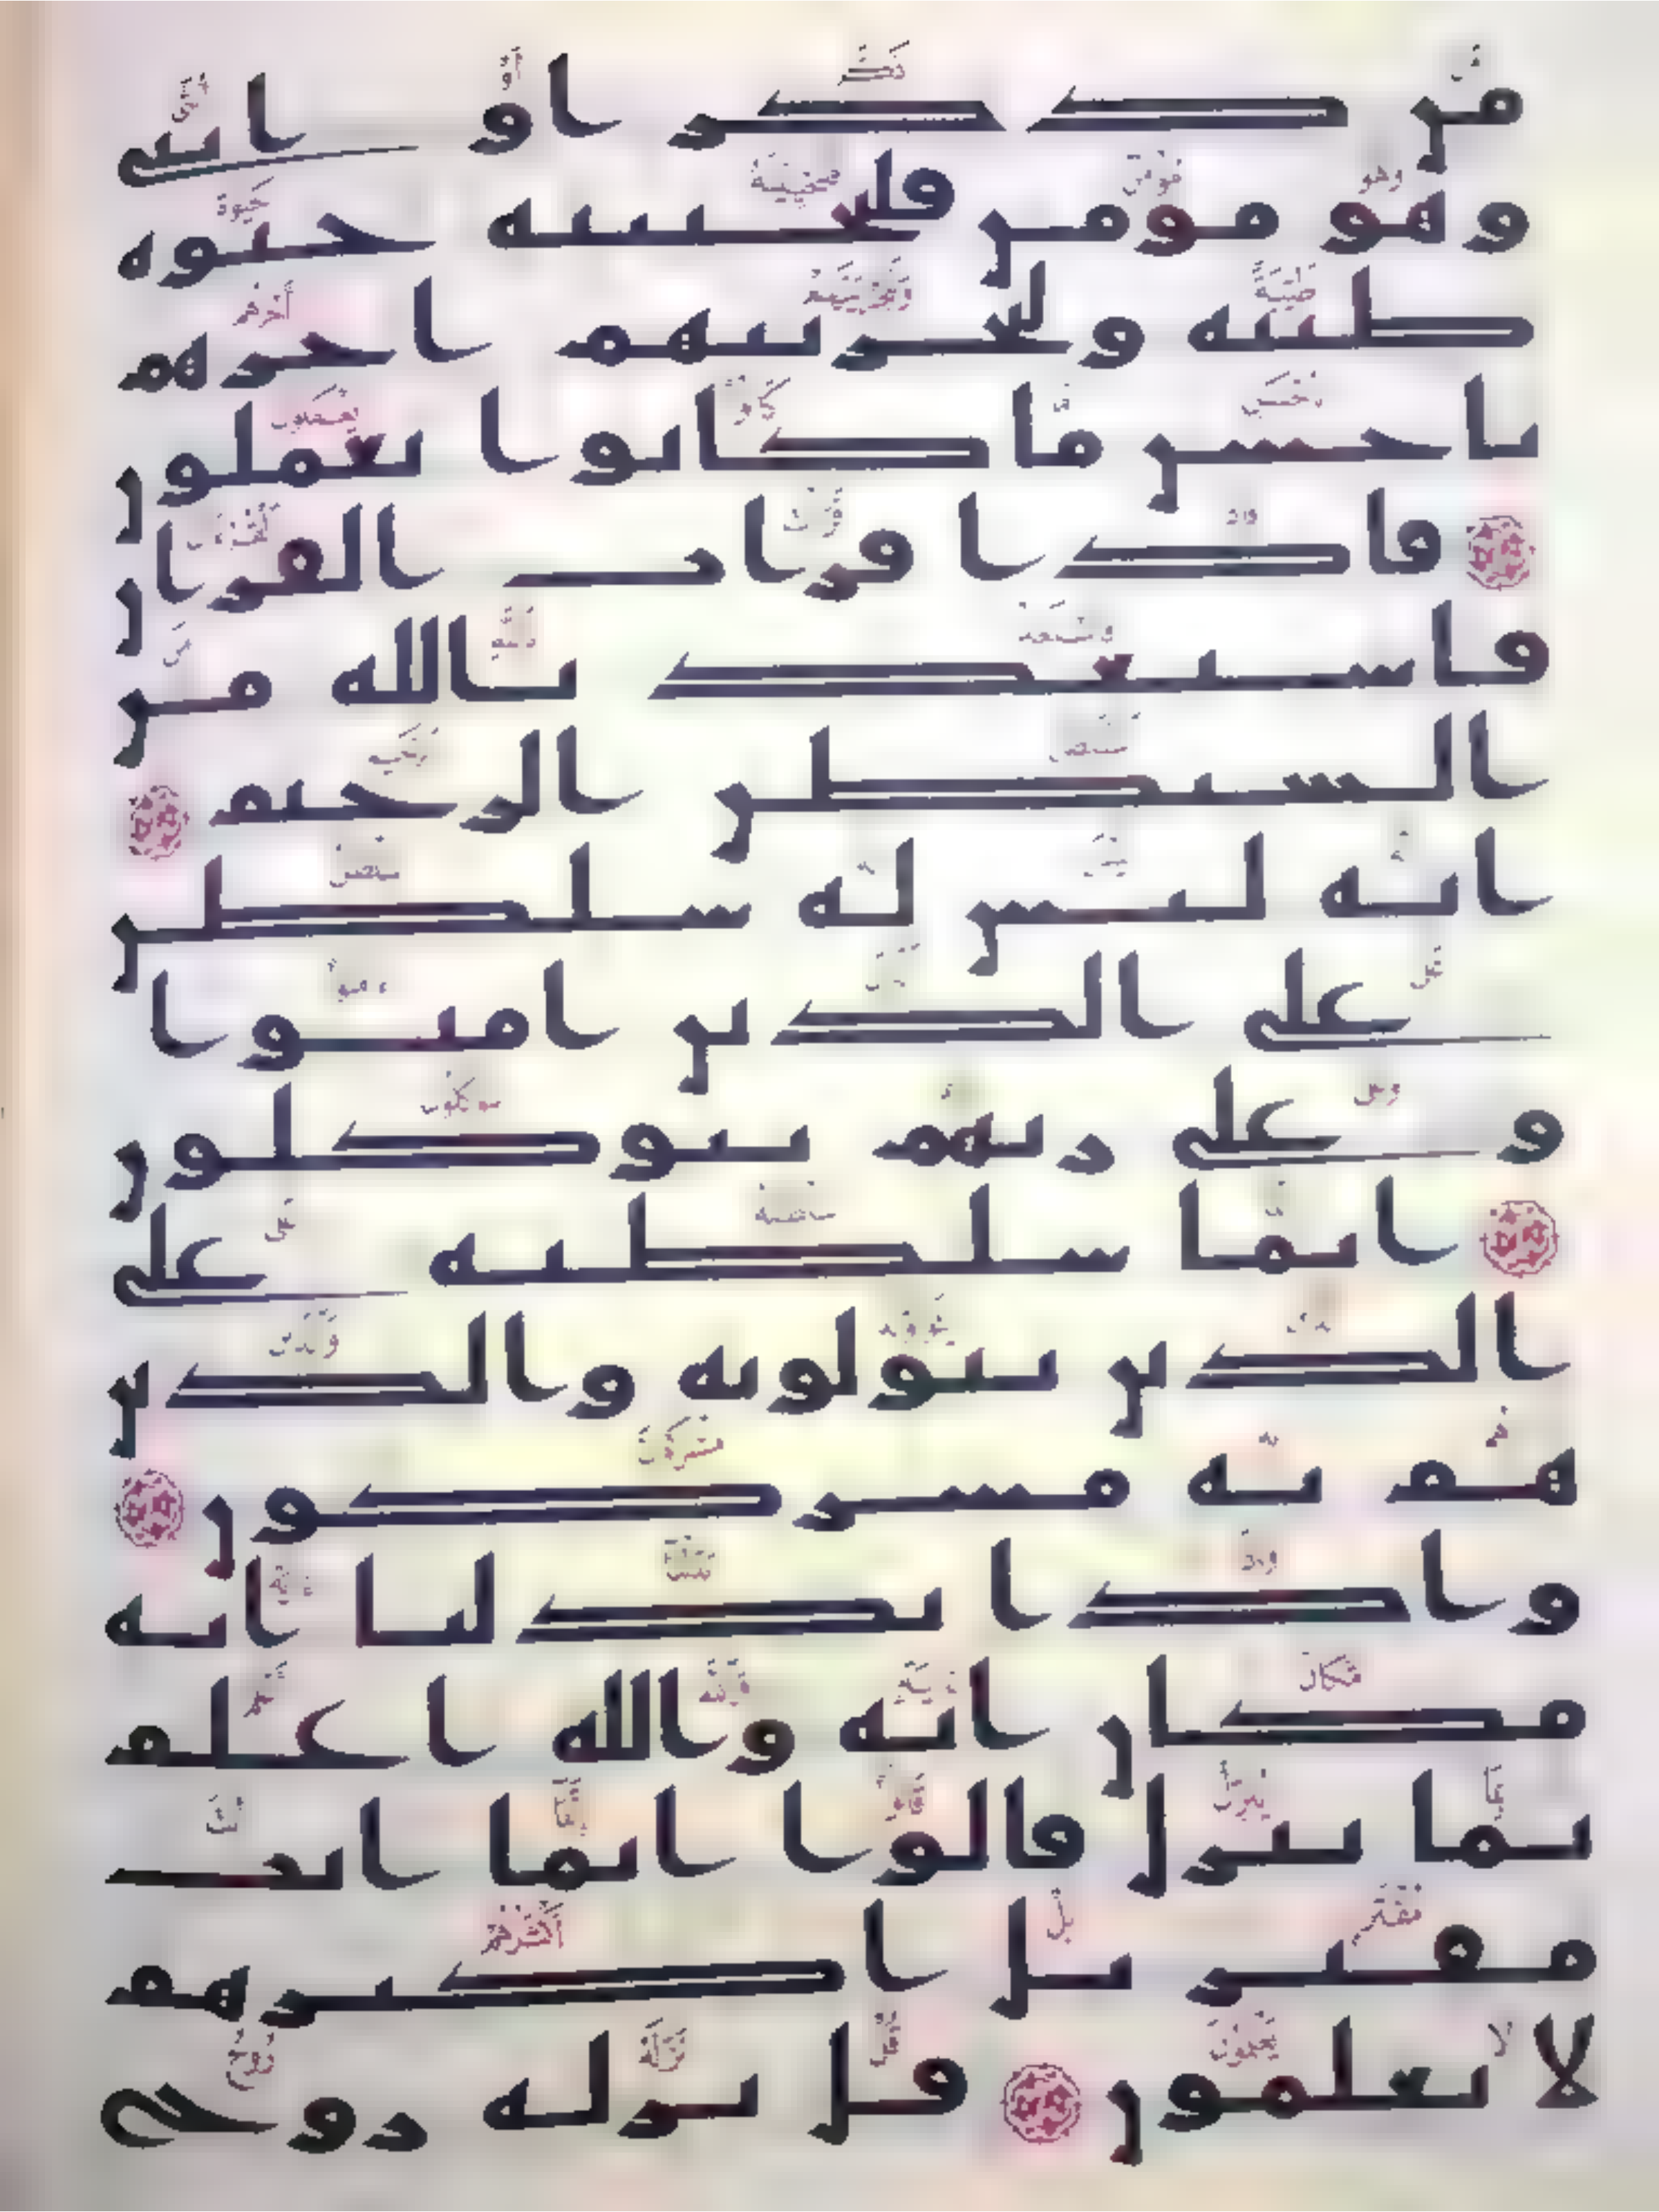 من ذكر او انثى
وهو مومن فلنحيينه حيوه
طيبه ولنجزينهم اجرهم
باحسن ما كانوا يعملون
فاذا قرات القران
فاستعذ بالله من
الشيطن الرجيم
انه ليس له سلطن
على الذين امنوا
وعلى ربهم يتوكلون
انما سلطنه على
الذين يتولونه والذين
هم به مشركون
واذا بدلنا ايه
مكان ايه والله اعلم
بما ينزل قالوا انما انت
مفتر بل اكثرهم
لا يعلمون قل نزله روح